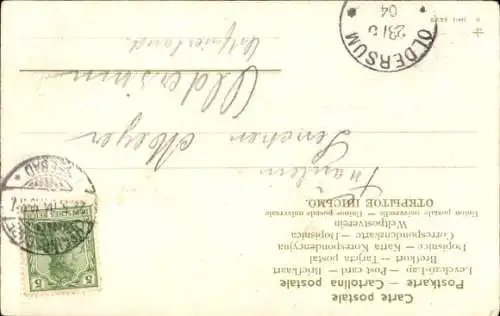 Carte postale
Postkarte — Cartolina postale
Levelezö-Lap — Post card — Briefkaart
Brefkort — Tarjeta postal
Dopisnice — Karta Korespondencyjna
Correspondenzkarte — Dopisnica
Weltpostverein
Union postale universelle — Union postale universale
ОТКРЫТОЕ ПИСЬМО.
Fräulein
Lenchen Meyer
Oldersum
Ostfriesland.
OLDERSUM
04
5
5